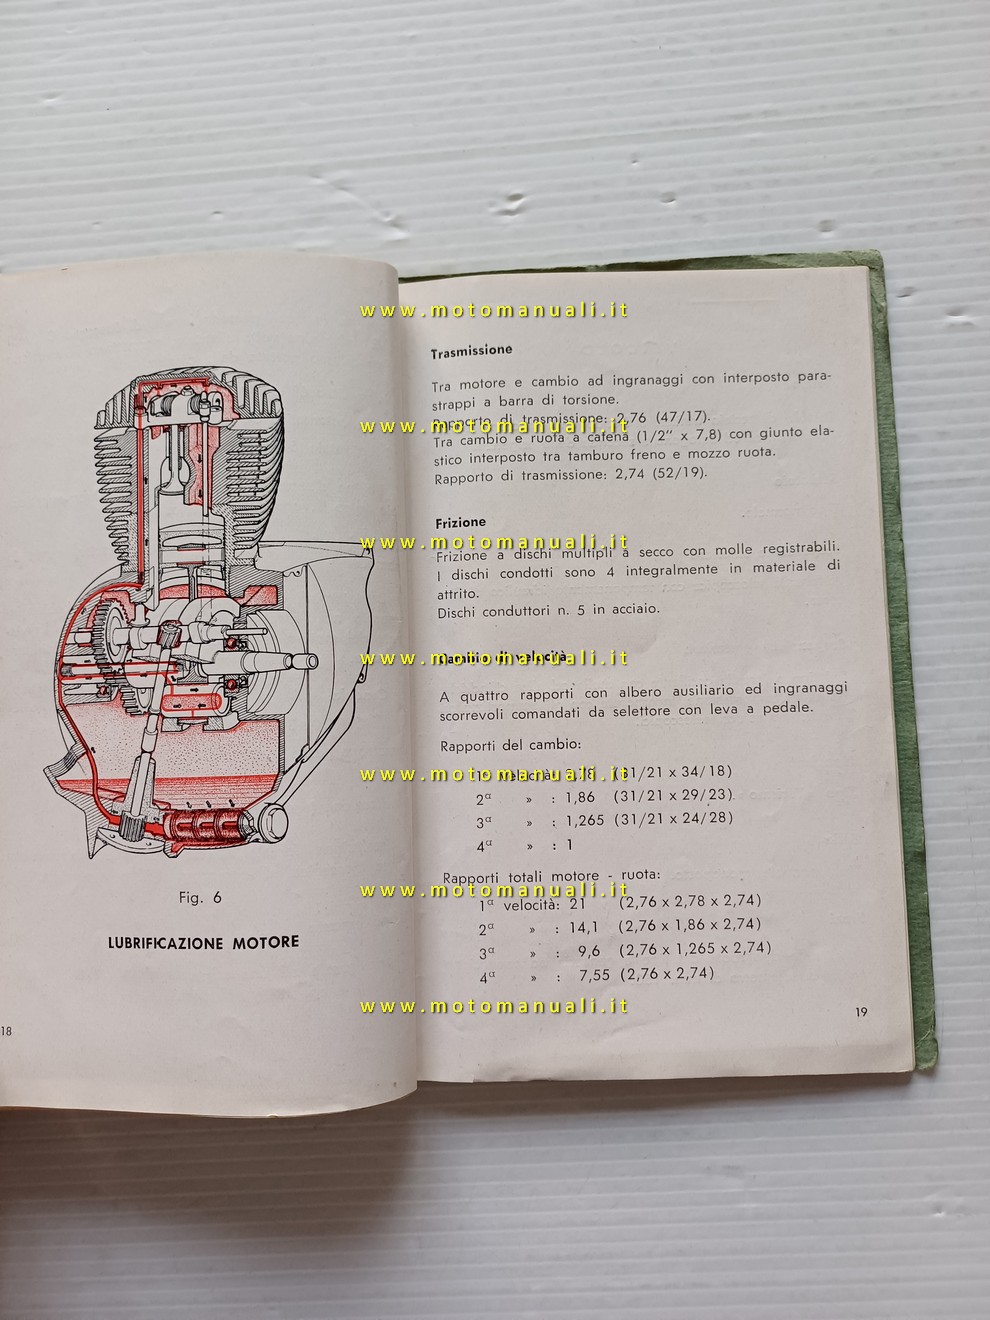 Fig. 6
LUBRIFICAZIONE MOTORE
18
www.motomanuali.it
Trasmissione
Tra motore e cambio ad ingranaggi con interposto para-
strappi a barra di torsione.
Rapporto di trasmissione: 2,76 (47/17).
www.motomanuali.it
Tra cambio e ruota a catena (1/2" x 7,8) con giunto ela-
stico interposto tra tamburo freno e mozzo ruota.
Rapporto di trasmissione: 2,74 (52/19).
Frizione
www.motomanuali.it
Frizione a dischi multipli a secco con molle registrabili.
I dischi condotti sono 4 integralmente in materiale di
attrito.
Dischi conduttori n. 5 in acciaio.
Cambio di velocità
www.motomanuali.it
A quattro rapporti con albero ausiliario ed ingranaggi
scorrevoli comandati da selettore con leva a pedale.
Rapporti del cambio:
1ª velocità: 2,78 (31/21 x 34/18)
www.motomanuali.it
2ª » : 1,86 (31/21 x 29/23).
3ª » : 1,265 (31/21 x 24/28)
4ª » : 1
Rapporti totali motore - ruota:
www.motomanuali.it
1ª velocità: 21 (2,76 x 2,78 x 2,74)
2ª » : 14,1 (2,76 x 1,86 x 2,74)
3ª » : 9,6 (2,76 x 1,265 x 2,74)
4ª » : 7,55 (2,76 x 2,74)
www.motomanuali.it
19